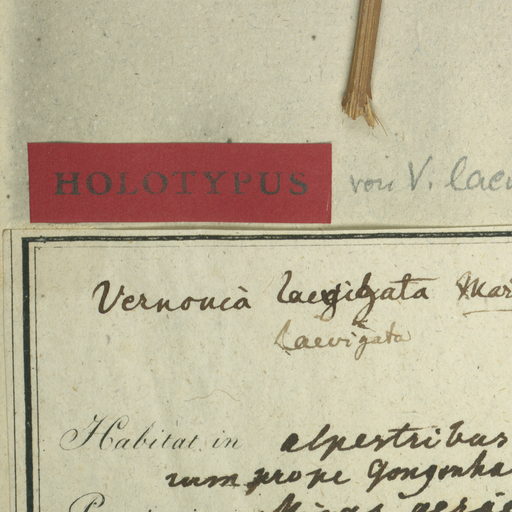 HOLOTYPUS
von V. laev
Vernonia laevigata Mar
laevigata
Habitat in alpestribus
prope Gongonha